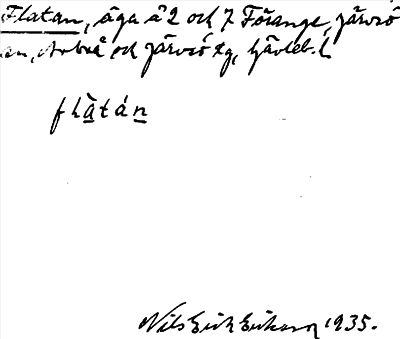 Flatan, äga å 2 och 7 Förånge, Järvsö
sn, Arbrå och Järvsö tg, Gävleb. l.
flàtán
Nils Erik Erikson 1935.